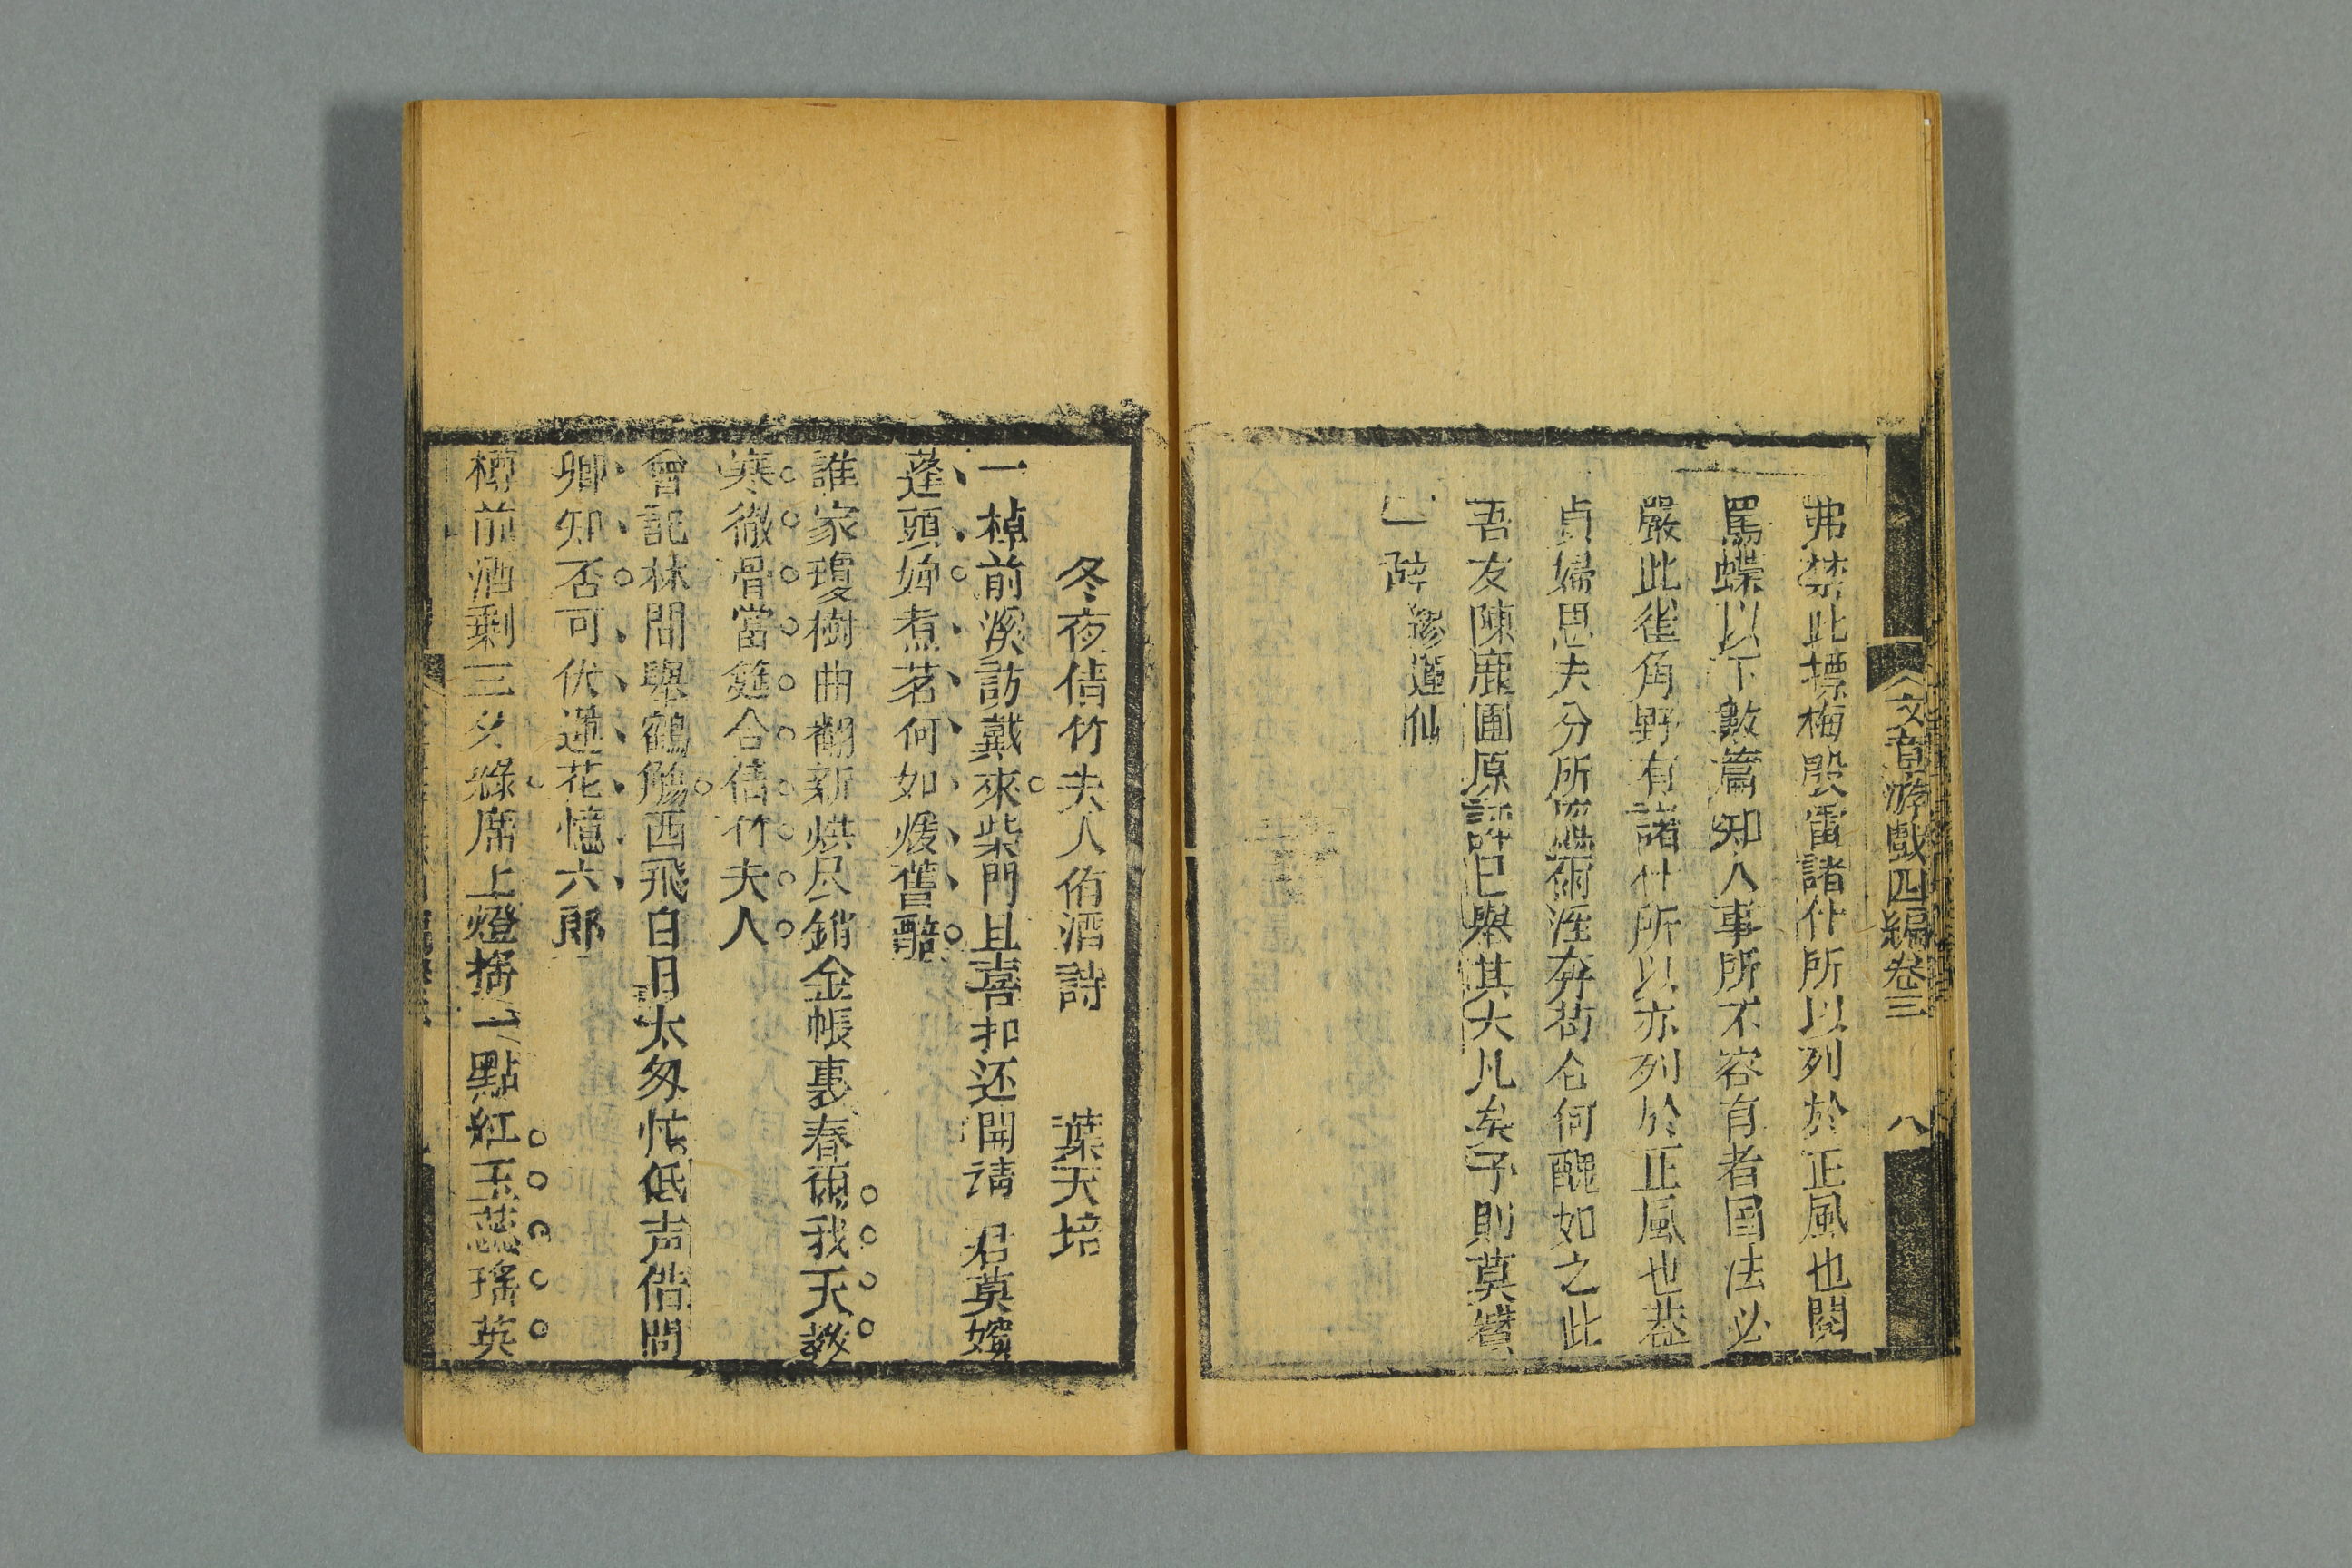 文章游戲四編卷三 八
弗禁此摽梅殷雷諸什所以列於正風也閱
罵蝶以下數篇知人事所不容有者国法必
嚴此雀角野有諸什所以亦列於正風也巷
貞婦思夫分所應爾淫奔苟合何醜如之此
吾友陳鹿圃原評已舉其大凡矣予則莫贊
一辭 繆蓮仙
冬夜倩竹夫人侑酒詩 葉天培
一棹前溪訪戴來柴門且喜扣还開請君莫嬪
蓬頭婢煮茗何如煖舊醅
誰家瓊樹曲翻新烘尽銷金帳裏春術我天教
寒徹骨當筵合倩竹夫人
曾記林間舉鶴觴西飛白日太匆忙低声偕問
卿知否可伏蓮花憶六郎
樽前酒剩三分綠席上燈搖一點紅玉蕊瑤英